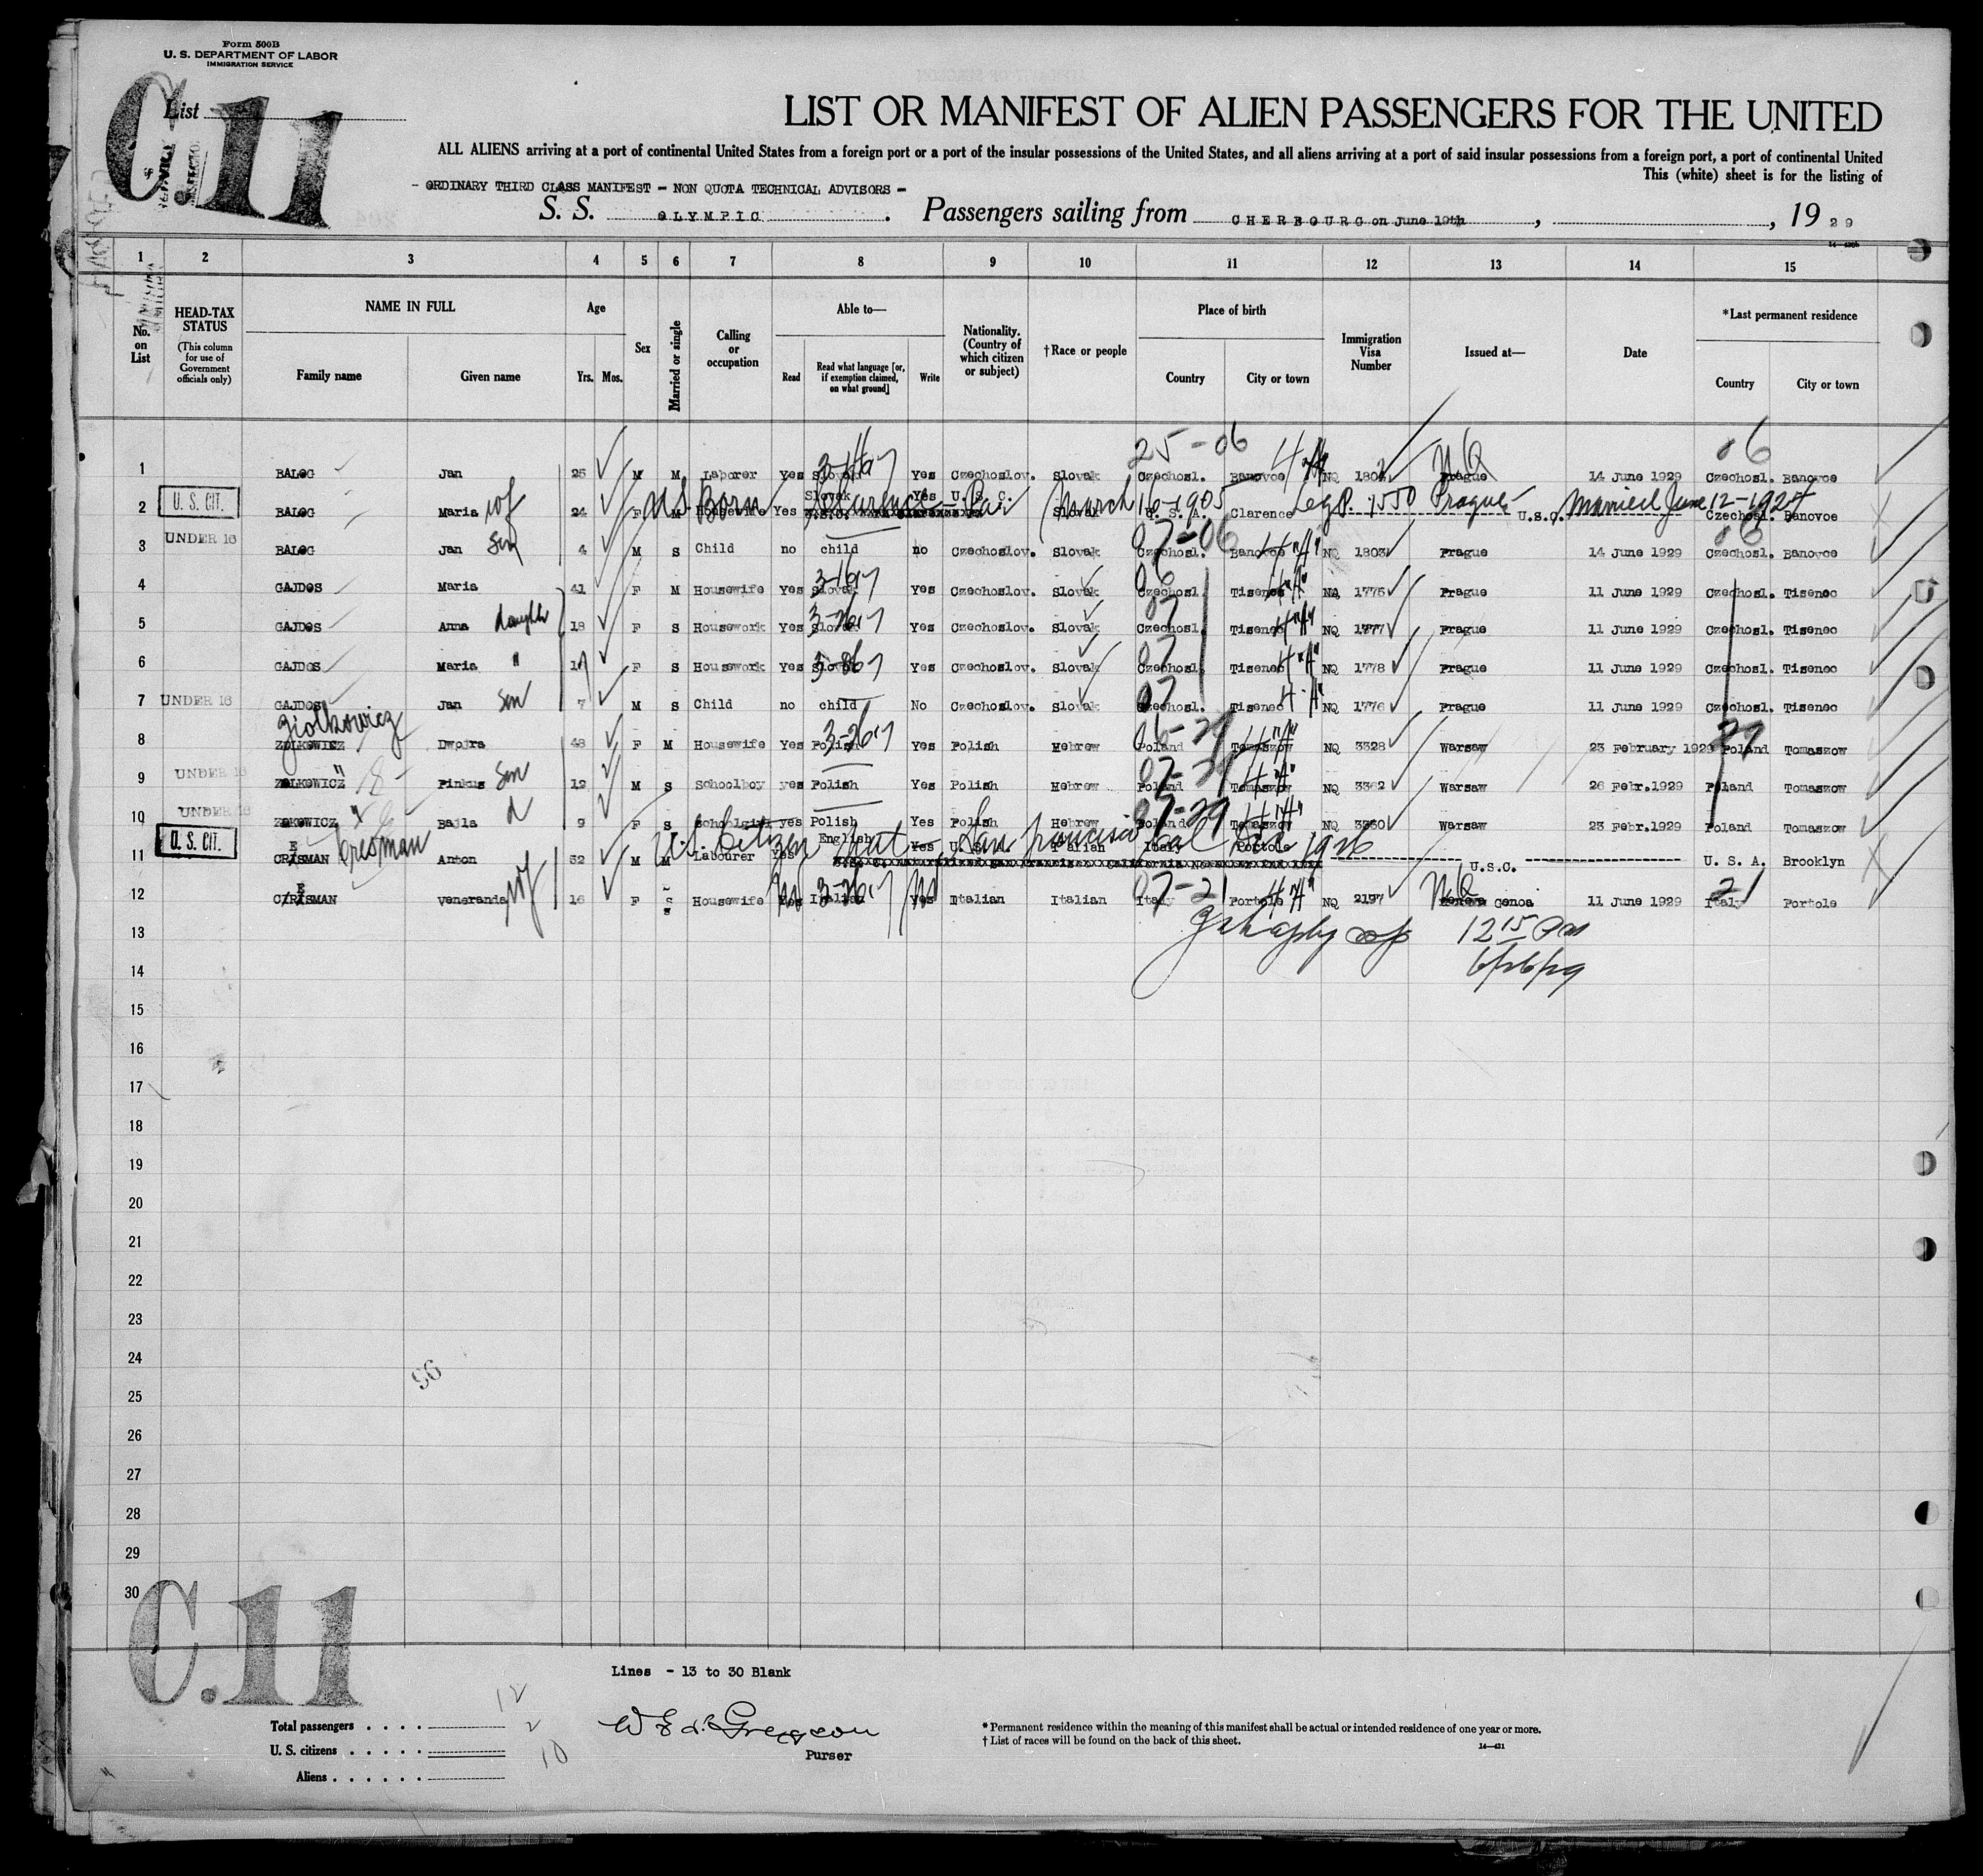 Form 500B
U. S. DEPARTMENT OF LABOR
IMMIGRATION SERVICE
List
C.11
LIST OR MANIFEST OF ALIEN PASSENGERS FOR THE UNITED
ALL ALIENS arriving at a port of continental United States from a foreign port or a port of the insular possessions of the United States, and all aliens arriving at a port of said insular possessions from a foreign port, a port of continental United
This (white) sheet is for the listing of
- ORDINARY THIRD CLASS MANIFEST - NON QUOTA TECHNICAL ADVISORS -
S. S. OLYMPIC . Passengers sailing from CHERBOURG on June 19th , , 19 29
1 2 3 4 5 6 7 8 9 10 11 12 13 14 15
No. on List
HEAD-TAX STATUS
(This column for use of Government officials only)
NAME IN FULL
Family name Given name
Age
Yrs. Mos.
Sex
Married or single
Calling or occupation
Able to—
Read Read what language [or, if exemption claimed, on what ground] Write
Nationality. (Country of which citizen or subject)
† Race or people
Place of birth
Country City or town
Immigration Visa Number
Issued at—
Date
*Last permanent residence
Country City or town
25-06 06
1 BALOG Jan 25 M M Laborer Yes Slovak Yes Czechoslov. Slovak Czechosl. Banovce NQ Prague 14 June 1929 Czechosl. Banovce
2 U. S. CIT. BALOG Maria wf 24 F M Housewife Yes Slovak Yes U. S. C. Slovak U. S. A. Clarence U.S.C. Czechosl. Banovce
U.S. Born Clarence Pa (March 16-1905 Prague Married June 12-1924
3 UNDER 16 BALOG Jan Son 4 M S Child no child no Czechoslov. Slovak Czechosl. Banovce NQ 1803 Prague 14 June 1929 Czechosl. Banovce
4 GAJDOS Maria 41 F M Housewife Yes Slovak Yes Czechoslov. Slovak Czechosl. Tisenec 1775 Prague 11 June 1929 Czechosl. Tisenec
5 GAJDOS Anna daughter 18 F S Housework Yes Slovak Yes Czechoslov. Slovak Czechosl. Tisenec NQ 1777 Prague 11 June 1929 Czechosl. Tisenec
6 GAJDOS Maria " F S Housework Yes Slovak Yes Czechoslov. Slovak Czechosl. Tisenec NQ 1778 Prague 11 June 1929 Czechosl. Tisenec
7 UNDER 16 GAJDOS Jan Son 7 M S Child no child No Czechoslov. Slovak Czechosl. Tisenec NQ 1776 Prague 11 June 1929 Czechosl. Tisenec
Ziolkowicz
8 ZOLKOWICZ Dwojra 48 F M Housewife Yes Polish Yes Polish Hebrew Poland Tomaszow NQ 3328 Warsaw 23 February 1929 Poland Tomaszow
9 UNDER 16 ZOLKOWICZ " Pinkus Son 12 M S Schoolboy yes Polish Yes Polish Hebrew Poland Tomaszow NQ 3362 Warsaw 26 Febr.1929 Poland Tomaszow
10 UNDER 16 ZOKOWICZ " Bajla d 9 F S Schoolgirl yes Polish Yes Polish Hebrew Poland Tomaszow NQ 3360 Warsaw 23 Febr.1929 Poland Tomaszow
U.S. Citizen Nat. San Francisco Cal Dec 1926
11 U. S. CIT. CRISMAN Cresman Anton 32 M M Labourer Yes English Yes U.S. Italian Italy Portole U.S.C. U. S. A. Brooklyn
12 CRISMAN Veneranda wf 16 F S Housewife Yes Italian Yes Italian Italian Italy Portole NQ 2197 Genoa 11 June 1929 Italy Portole
13 12 15 Pm
14 6/26/29
15
16
17
18
19
20
21
22
23
24
96
25
26
27
28
29
30
C.11
Lines - 13 to 30 Blank
Total passengers . . . . 12
U. S. citizens . . . . . 2
Aliens . . . . . . 10
Purser
* Permanent residence within the meaning of this manifest shall be actual or intended residence of one year or more.
† List of races will be found on the back of this sheet.
14—431